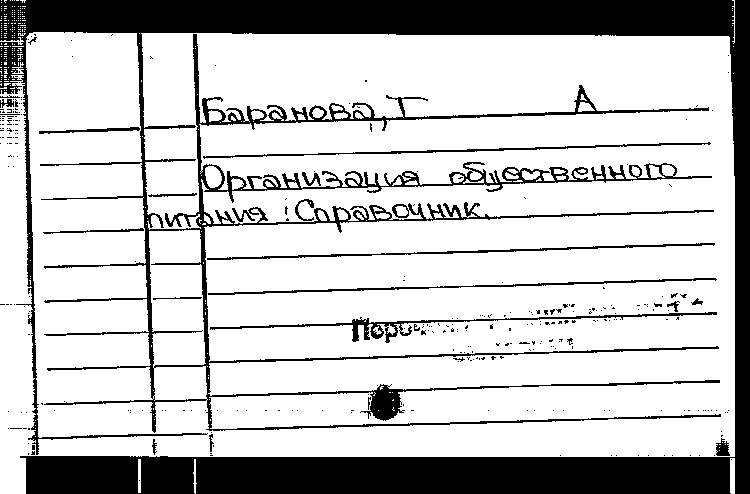 Баранова, Т А
Организация общественного
питания : Справочник.